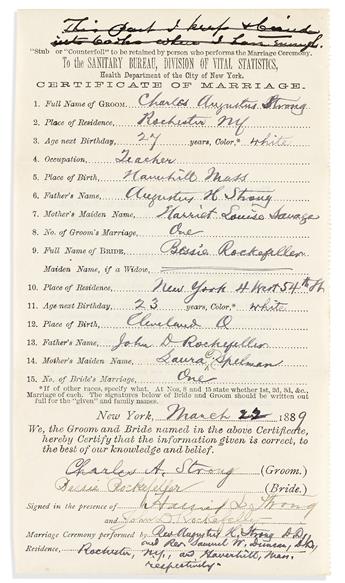 This part I keep & bind
into books when I have enough.
"Stub" or "Counterfoil" to be retained by person who performs the Marriage Ceremony.
To the SANITARY BUREAU, DIVISION OF VITAL STATISTICS,
Health Department of the City of New York.
CERTIFICATE OF MARRIAGE.
1. Full Name of GROOM, Charles Augustus Strong
2. Place of Residence, Rochester NY
3. Age next Birthday, 27 years, Color,* white
4. Occupation, Teacher
5. Place of Birth, Haverhill Mass
6. Father's Name, Augustus H Strong
7. Mother's Maiden Name, Harriet Louise Savage
8. No. of Groom's Marriage, One
9. Full Name of BRIDE, Bessie Rockefeller
Maiden Name, if a Widow,
10. Place of Residence, New York 4 West 54th St
11. Age next Birthday, 23 years, Color,* white
12. Place of Birth, Cleveland O
13. Father's Name, John D Rockefeller
14. Mother's Maiden Name, Laura C. Spelman
15. No. of Bride's Marriage, One
*If of other races, specify what. At Nos. 8 and 15 state whether 1st, 2d, 3d, &c.,
Marriage of each. The signatures below of Bride and Groom should be written out
full for the "given" and family names.
New York, March 22 1889
We, the Groom and Bride named in the above Certificate,
hereby Certify that the information given is correct, to
the best of our knowledge and belief.
Charles A. Strong (Groom.)
Bessie Rockefeller (Bride.)
Signed in the presence of Harriet L. Strong
and John D. Rockefeller
Marriage Ceremony performed by Rev Augustus H. Strong D.D.,
and Rev. Samuel W. Duncan, D.D.,
Residence, Rochester, N.Y., and Haverhill, Mass.
respectively